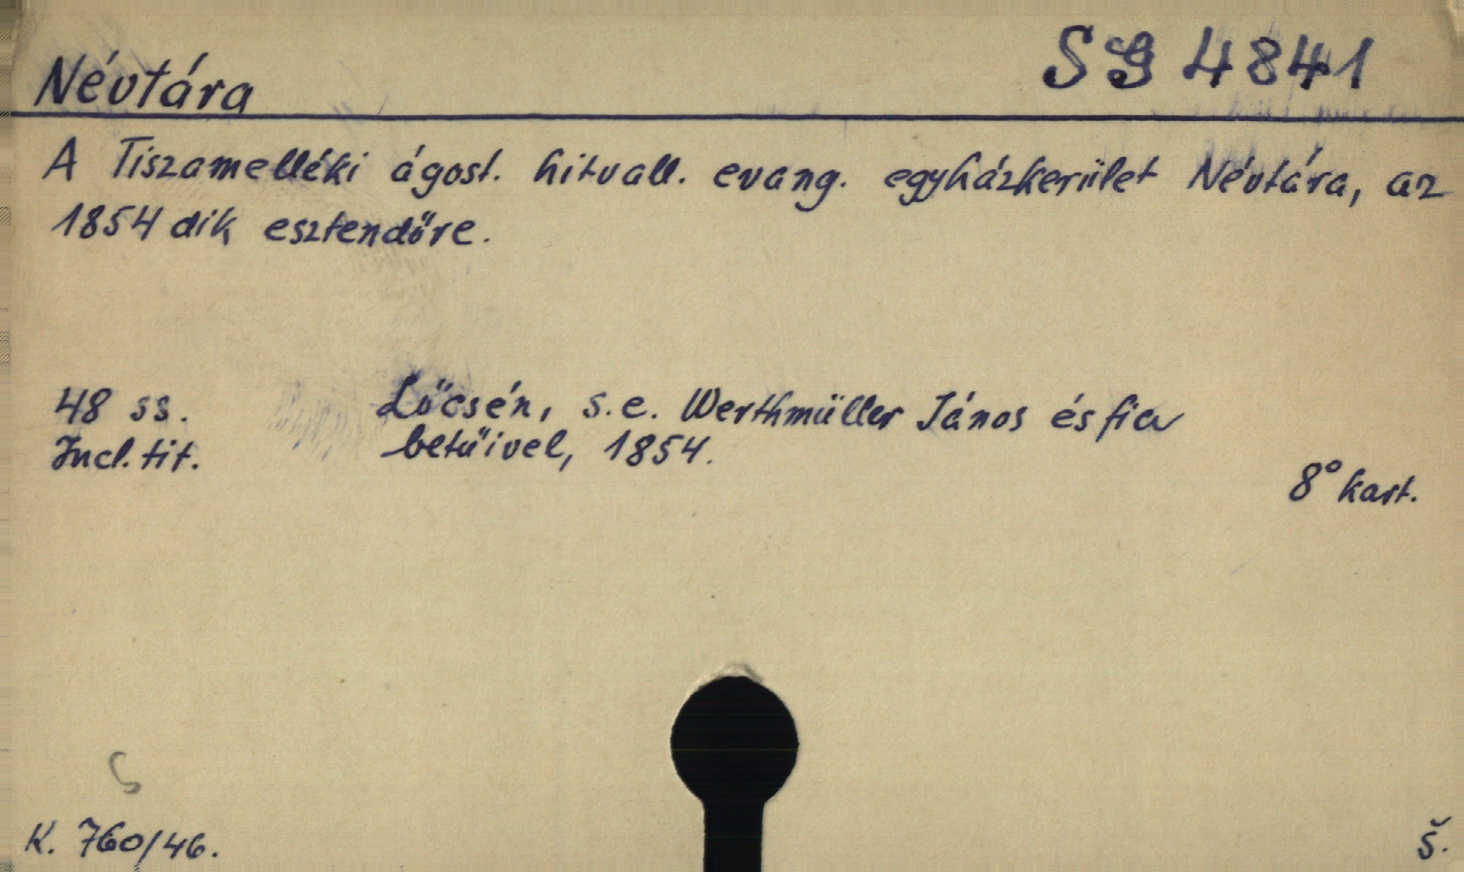 Névtára
SG 4841
A Tiszamelléki ágost. hitvall. evang. egyházkerület Névtára, az
1854 dik esztendőre.
48 ss.
Lőcsén, s.e. Werthmüller János és fia
Incl. tit.
betűivel, 1854.
8° kart.
K. 760/46.
Š.